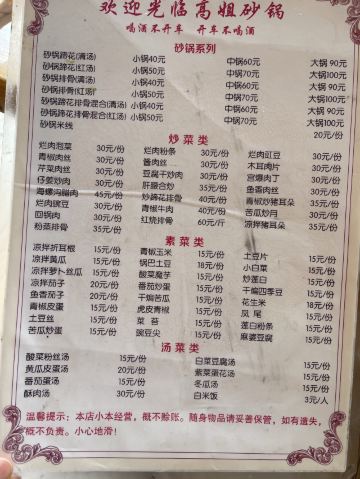 欢迎光临高姐砂锅
喝酒不开车 开车不喝酒
砂锅系列
砂锅蹄花(清汤) 小锅40元 中锅60元 大锅 90元
砂锅蹄花(红汤) 小锅50元 中锅70元 大锅100元
砂锅排骨(清汤) 小锅40元 中锅60元 大锅 90元
砂锅排骨(红汤) 小锅50元 中锅70元 大锅100元
砂锅蹄花排骨混合(清汤) 小锅40元 中锅60元 大锅100元
砂锅蹄花排骨混合(红汤) 小锅50元 中锅70元 大锅100元
砂锅米线 20元/份
炒菜类
烂肉泡菜 30元/份 烂肉粉条 30元/份 烂肉豇豆 30元/份
青椒肉丝 30元/份 酱肉丝 30元/份 木耳肉片 30元/份
芹菜肉丝 30元/份 豆腐干炒肉 30元/份 宫爆肉丁 30元/份
仔姜炒肉 30元/份 肝腰合炒 35元/份 鱼香肉丝 30元/份
45元/份 炒蹄花排骨 40元/份 青椒炒猪耳朵 35元/份
烂肉豌豆 30元/份 青椒牛肉 40元/份 苦瓜炒肉 30元/份
回锅肉 30元/份 红烧排骨 60元/斤 凉拌猪耳朵 35元/份
粉蒸排骨 35元/份
素菜类
凉拌折耳根 15元/份 青椒玉米 15元/份 土豆片 15元/份
凉拌黄瓜 15元/份 锅巴土豆 18元/份 小白菜 15元/份
凉拌萝卜丝瓜 15元/份 酸菜魔芋 15元/份 炝莲白 15元/份
凉拌茄子 20元/份 番茄炒蛋 15元/份 干煸四季豆 15元/份
鱼香茄子 20元/份 干煸苦瓜 15元/份 花生米 18元/份
青椒皮蛋 15元/份 虎皮青椒 15元/份 凤尾 15元/份
土豆丝 15元/份 菜苔 15元/份 莲白粉条 15元/份
苦瓜炒蛋 15元/份 豌豆尖 15元/份 麻婆豆腐 15元/份
汤菜类
酸菜粉丝汤 15元/份 白菜豆腐汤 15元/份
黄瓜皮蛋汤 20元/份 紫菜蛋花汤 15元/份
番茄蛋汤 15元/份 冬瓜汤 15元/份
酥肉汤 30元/份 白米饭 3元/人
温馨提示：本店小本经营，概不赊账。随身物品请妥善保管，如有遗失，
概不负责。小心地滑！